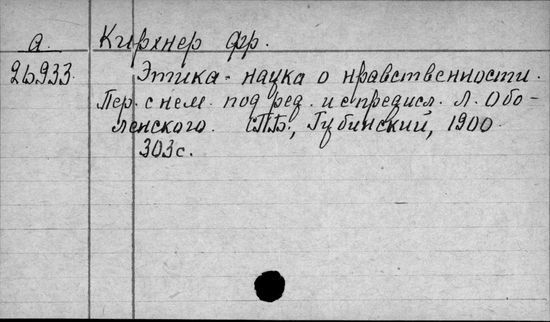 а. Кирхнер Фр.
26933. Этика - наука о нравственности.
Пер. с нем. под ред. и с предисл. Л. Обо-
ленского. СПБ., Губинский, 1900.
303 с.